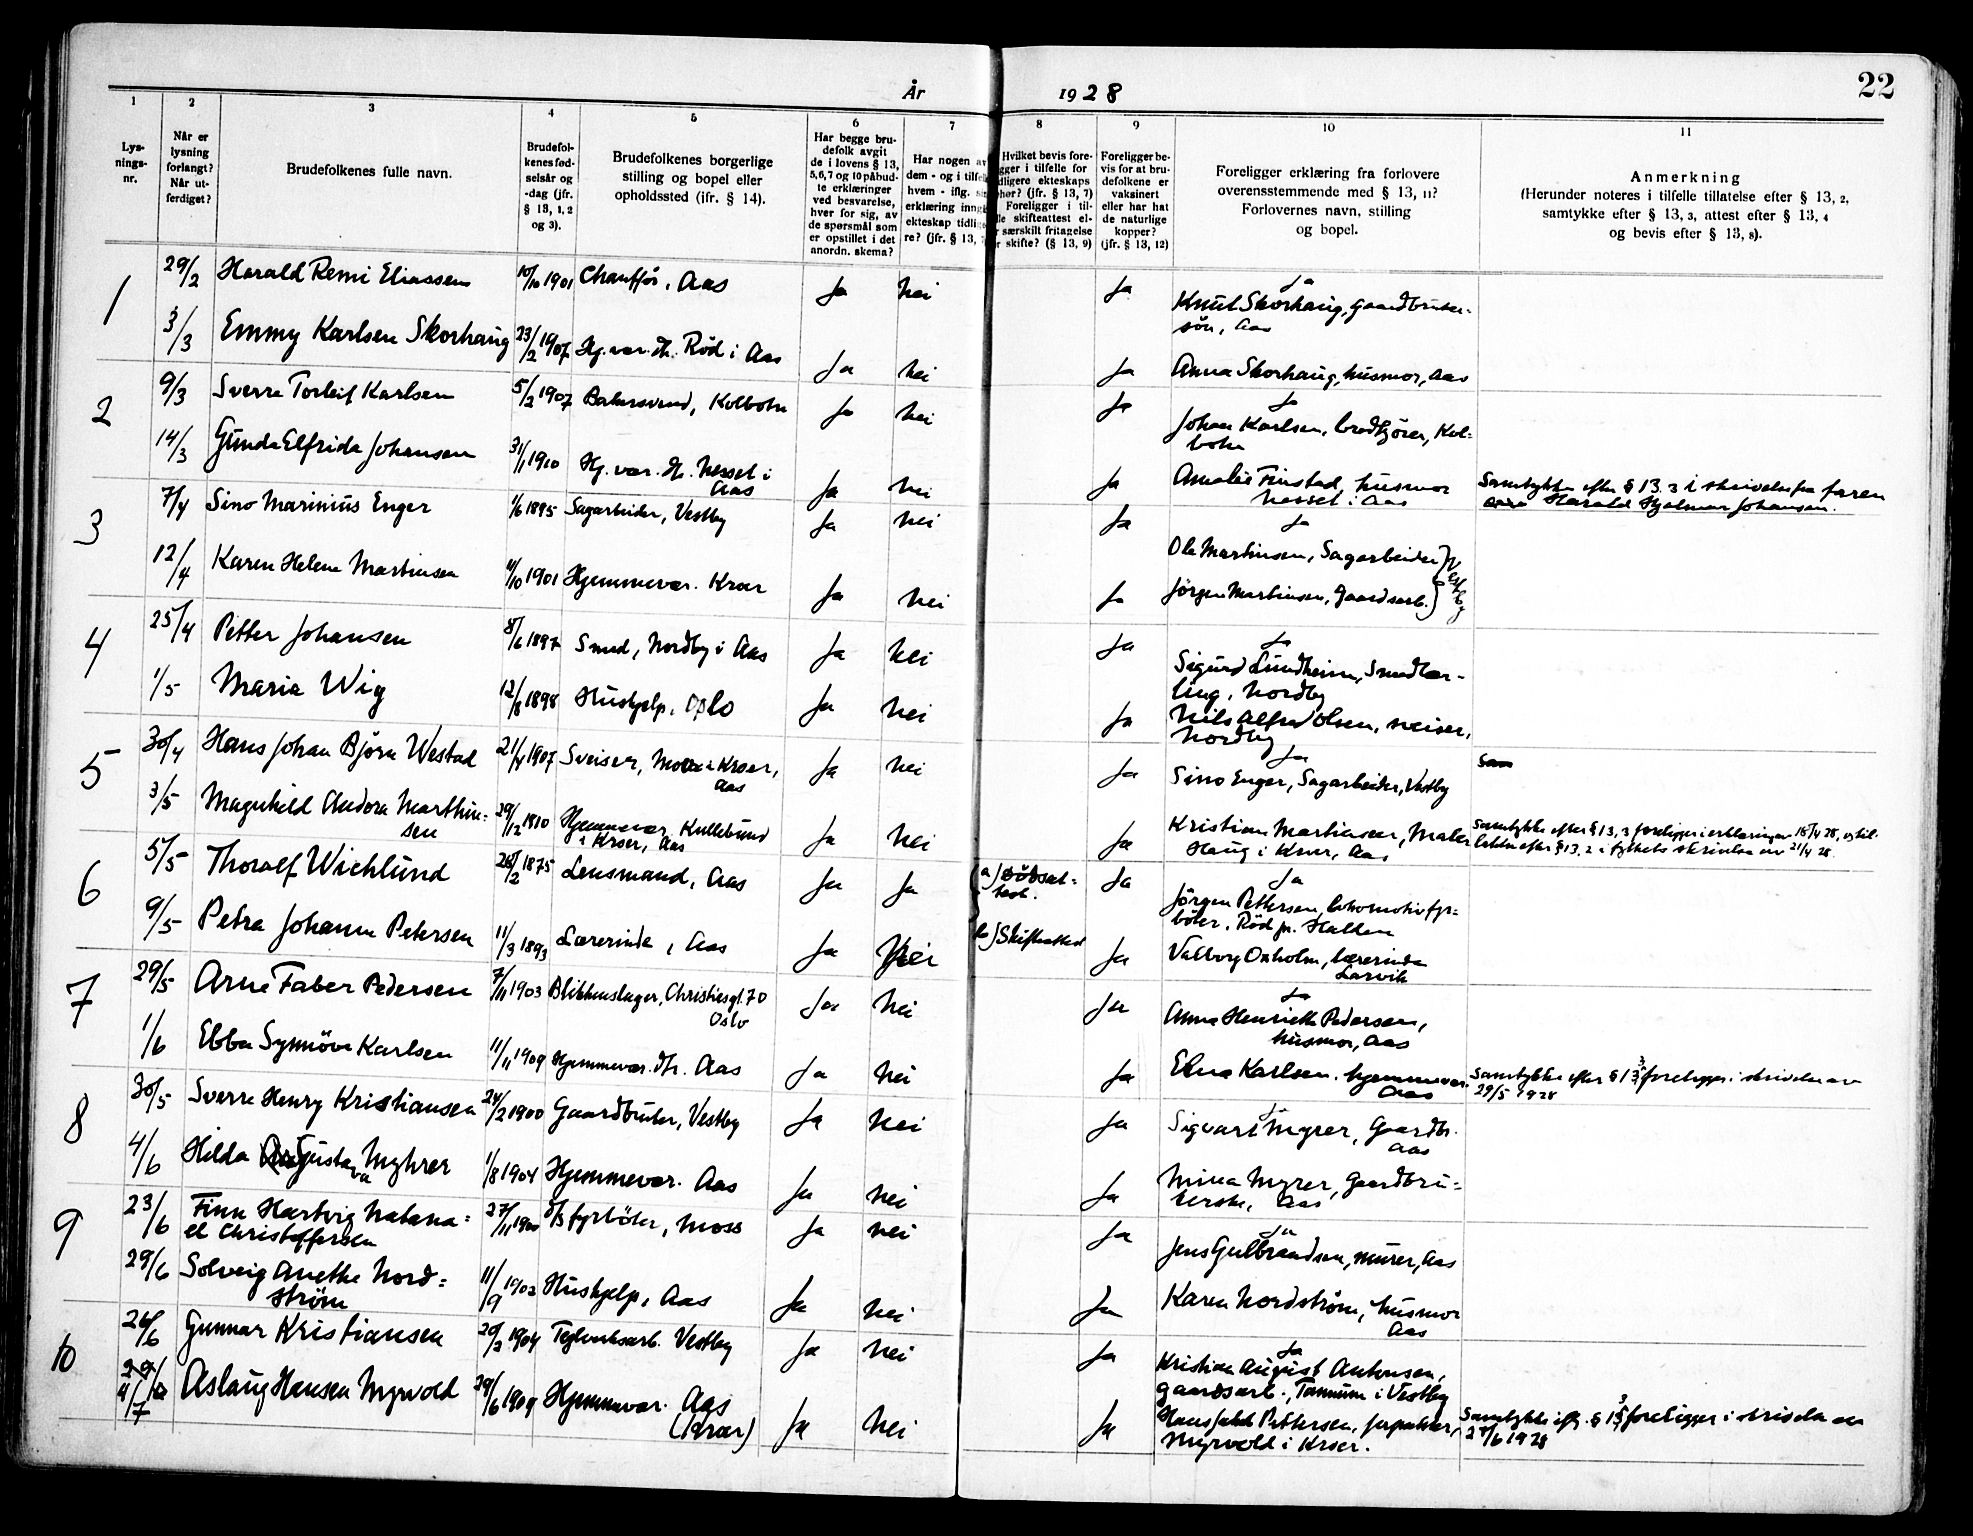 År 1928
22
1 2 3 4 5 6 7 8 9 10 11
Lys-
nings-
nr.
Når er
lysning
forlangt?
Når ut-
ferdiget?
Brudefolkenes fulle navn.
Brudefol-
kenes fød-
selsår og
-dag (jfr.
§ 13, 1, 2
og 3).
Brudefolkenes borgerlige
stilling og bopel eller
opholdssted (ifr. § 14).
Har begge bru-
defolk avgit
de i lovens § 13,
5,6,7 og 10 påbud-
te erklæringer
ved besvarelse,
hver for sig, av
de spørsmål som
er opstillet i det
anordn. skema?
Har nogen av
dem - og i tilfel
hvem - iflg.
erklæring inng
ekteskap tidlig
re? (jfr. § 13,
Hvilket bevis fore-
gger i tilfelle for
dligere ekteskaps
phør? (jfr. § 13, 7)
Foreligger i til-
lle skifteattest el-
r særskilt fritagelse
r skifte? (§ 13, 9)
Foreligger be-
vis for at bru-
defolkene er
vaksinert
eller har hat
de naturlige
kopper?
(jfr. § 13, 12)
Foreligger erklæring fra forlovere
overensstemmende med § 13, 11?
Forlovernes navn, stilling
og bopel.
Anmerkning
(Herunder noteres i tilfelle tillatelse efter § 13, 2,
samtykke efter § 13, 3, attest efter § 13, 4
og bevis efter § 13, 8).
1 29/2 Harald Remi Eliassen 10/10 1901 Chauffør, Aas Ja Nei Ja Ja
Knut Skorhaug, gaardbruker-
søn, Aas
3/3 Emmy Karlsen Skorhaug 23/2 1907 Hj. vær. dt. Rød i Aas Ja Nei Ja Anna Skorhaug, husmor, Aas
2 9/3 Sverre Torleif Karlsen 5/2 1907 Bakersvend, Kolbotn Ja Nei Ja Ja
Johan Karlsen, brødkjører, Kol-
botn
14/3 Gunda Elfrida Johansen 31/1 1910 Hj. vær. dt. Nesset i
Aas Ja Nei Ja Amalie Finstad, husmor
Nesset i Aas
Samtykke efter § 13.3 i skrivelse fra faren
Harald Hjalmar Johansen.
3 7/4 Sino Marinius Enger 1/6 1895 Sagarbeider, Vestby Ja Nei Ja Ja
Ole Martinsen, Sagarbeider } Vestby
12/4 Karen Helene Martinsen 4/10 1901 Hjemmevær. Kroer Ja Nei Ja Jørgen Martinsen, Gaardsarb.
4 25/4 Petter Johansen 8/6 1897 Smed, Nordby i Aas Ja Nei Ja Ja
Sigurd Lundheim, Smedlær-
ling, Nordby
1/5 Maria Wig 12/8 1898 Hushjelp, Oslo Ja Nei Ja Nils Alfred Olsen, sveiser,
Nordby
5 30/4 Hans Johan Bjørn Westad 21/4 1907 Sveiser, Kroer,
Aas Ja Nei Ja Ja
Sino Enger, Sagarbeider, Vestby
Sam
3/5 Magnhild Andora Marthin-
sen 29/12 1810 Hjemmevær Kullebund
i Kroer, Aas Ja Nei Ja Kristian Martinsen, Maler
Haug i Kroer, Aas
Samtykke efter § 13,3 foreligger i erklæring av 18/4 28, og til-
latelse efter § 13.2 i fylkets skrivelse av 21/4 28.
6 5/5 Thoralf Wichlund 28/2 1875 Lensmand, Aas Ja Ja a) Dødsat-
test. Ja Ja
Jørgen Pettersen, lokomotivfyr-
bøter, Rød pr. Halden
9/5 Petra Johanne Petersen 11/3 1893 Lærerinde, Aas Ja Nei b) Skifteattest Ja Valborg Oxholm, lærerinde
Larvik
7 29/5 Arne Faber Pedersen 7/11 1903 Blikkenslager, Christiesgt. 70
Oslo Ja Nei Ja Ja
Anna Henriette Pedersen,
husmor, Aas
1/6 Ebba Synnöve Karlsen 11/11 1909 Hjemmevær. dtr. Aas Ja Nei Ja Elna Karlsen, hjemmevær.
Aas
Samtykke efter § 13,3 foreligger i skrivelse av
29/5 1928
8 30/5 Sverre Henry Kristiansen 24/2 1900 Gaardbruker, Vestby Ja Nei Ja Ja
Sigvart Myrer, Gaardbr.
Aas
4/6 Hilda Gustava Myhrer 1/8 1904 Hjemmevær. Aas Ja Nei Ja Mina Myrer, Gaardbru-
kerske, Aas
9 23/6 Finn Hartvig Natana-
el Christoffersen 27/11 1900 d/s fyrbøter, Moss Ja Nei Ja Ja
Jens Gulbrandsen, murer, Aas
29/6 Solveig Anethe Nord-
strøm 11/9 1903 Hushjelp, Aas Ja Nei Ja Karen Nordstrøm, husmor
Aas
10 26/6 Gunnar Kristiansen 20/3 1904 Teglverksarb. Vestby Ja Nei Ja Ja
Kristian August Antonsen,
gaardsarb., Tannum i Vestby
4/7 Aslaug Hansen Myrvold 29/6 1909 Hjemmevær. Aas
(Kroer) Ja Nei Ja Hans Jakob Pettersen,
Myrvold i Kroer.
Samtykke eft. § 13,3 foreligger i skrivelse av
27/6 1928